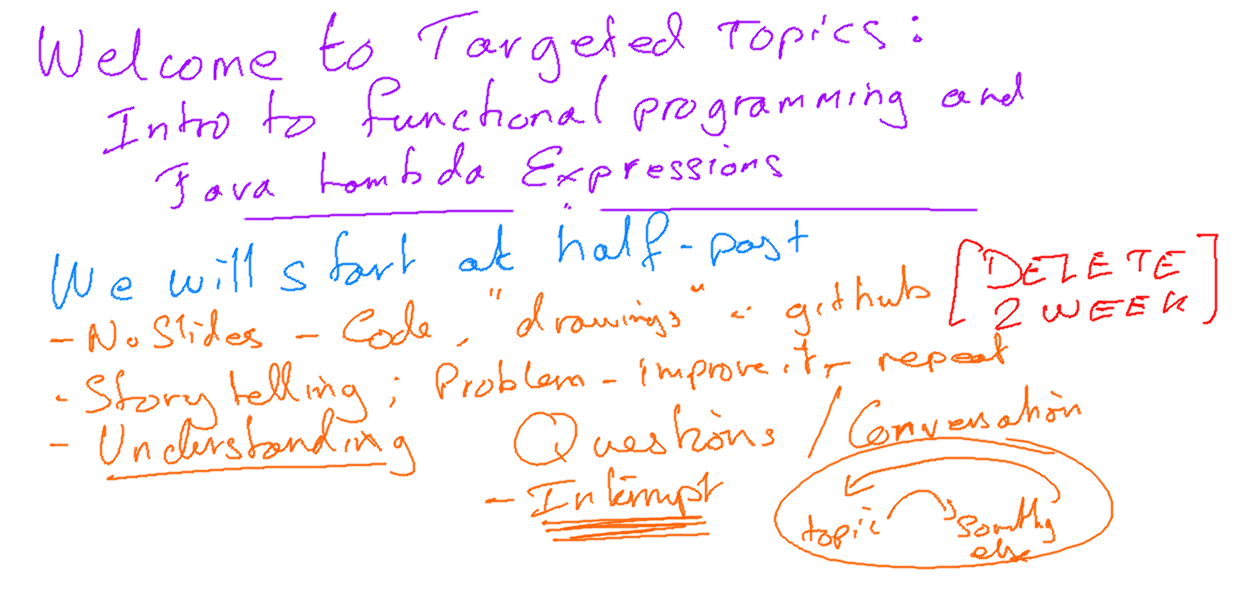 Welcome to Targeted Topics:
Intro to functional programming and
Java Lambda Expressions
We will start at half-past
- No Slides - Code, "drawings" - github [DELETE
2 WEEK]
- Story telling; Problem - improve it - repeat
- Understanding Questions / Conversation
- Interrupt
topic something
else